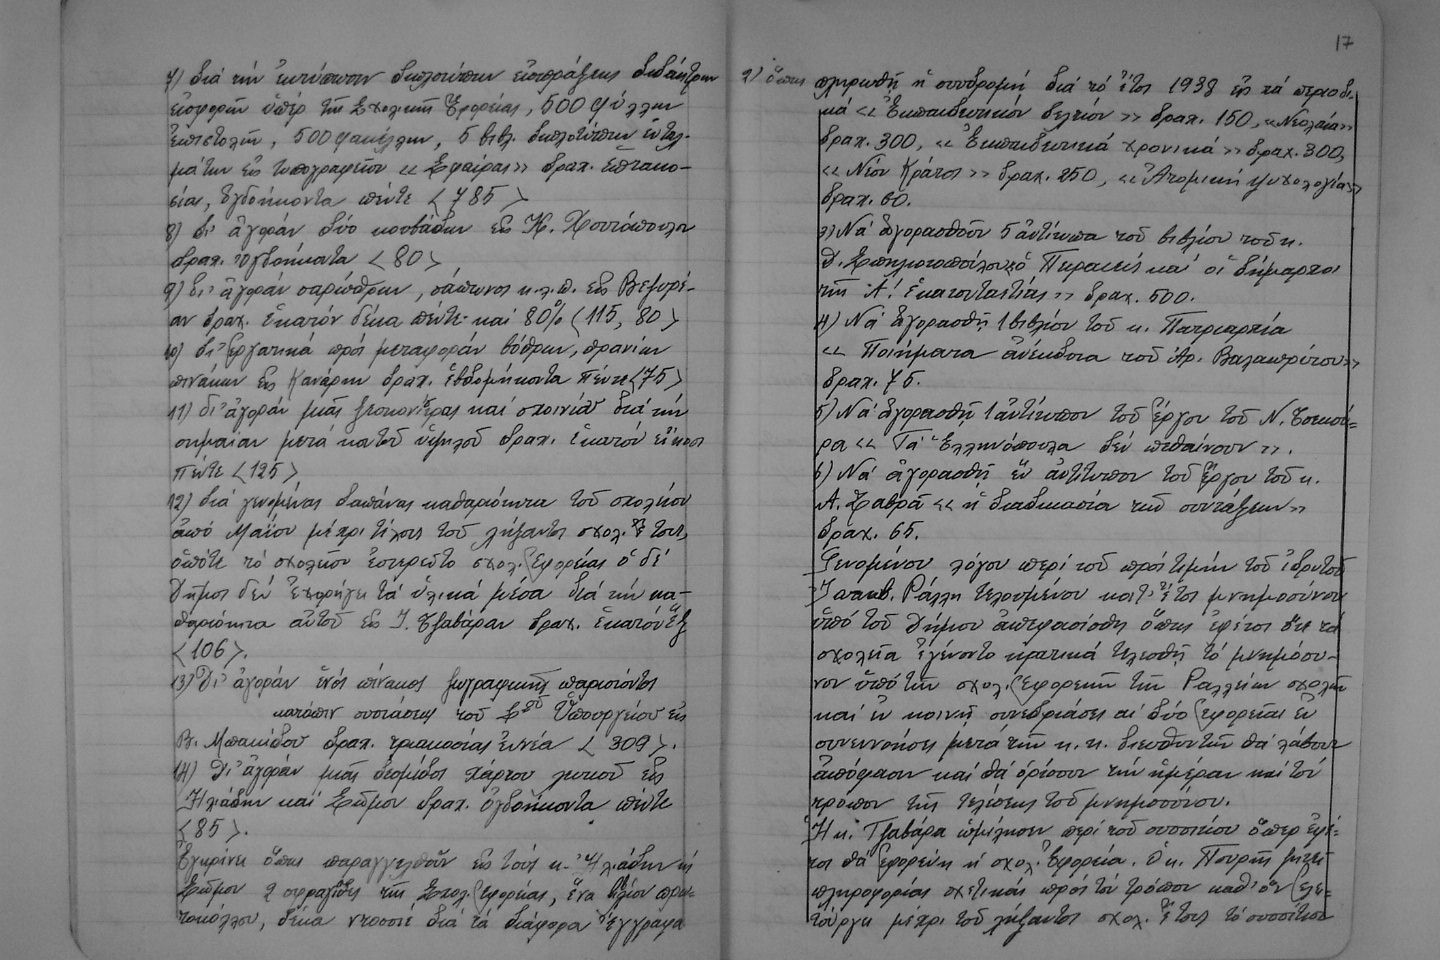 7) διά τήν ἐκτύπωσιν διπλοτύπων εἰσπράξεως διδάκτρων
εἰσφορῶν ὑπέρ τῆς Σχολικῆς Ἐφορείας, 500 φύλλων
ἐπιστολῶν, 500 φακέλλων, 5 βιβλ. διπλοτύπων ἐνταλ-
μάτων εἰς τυπογραφεῖον «Σφαίρας» δραχ. ἑπτακο-
σίας, ὀγδοήκοντα πέντε <785>
8) δι' ἀγοράν δύο κουβάδων εἰς Κ.
δραχ. ὀγδοήκοντα <80>
9) δι' ἀγοράν σαρώθρων, σάπωνος κ.λ.π. εἰς
δραχ. ἑκατόν δέκα πέντε καί 80% <115,80>
10) δι' ἐργατικά πρός μεταφοράν βάθρων, θρανίων
πινάκων εἰς Κανάρην δραχ. ἑβδομήκοντα πέντε <75>
11) δι' ἀγοράν μιᾶς καί σχοινίου διά τήν
σημαίαν μετά κοντοῦ ὑψηλοῦ δραχ. ἑκατόν εἴκοσι
πέντε <125>
12) διά γενομένας δαπάνας καθαριότητα τοῦ σχολείου
ἀπό Μαΐου μέχρι τέλους τοῦ λήξαντος σχολ. ἔτους,
ὁπότε τό σχολεῖον ἐστερεῖτο σχολ. Ἐφορείας ὁ δέ
Δῆμος δέν ἐχορήγει τά ὑλικά μέσα διά τήν κα-
θαριότητα αὐτοῦ εἰς Ι. Τζαβάραν δραχ. ἑκατόν ἕξ
<106>.
13) Δι' ἀγοράν ἑνός πίνακος ζωγραφικῆς παριστῶντος
κατόπιν συστάσεως τοῦ Σ. Ὑπουργείου εἰς
Β. δραχ. τριακοσίας ἐννέα <309>.
14) Δι' ἀγοράν μιᾶς δεσμίδος χάρτου λευκοῦ εἰς
Ἠλιάδην καί Σῶμον δραχ. ὀγδοήκοντα πέντε
<85>.
Ἐγκρίνει ὅπως παραγγελθοῦν εἰς τούς κ. Ἠλιάδην καί
Σῶμον 2 σφραγῖδες τῆς Σχολ. Ἐφορείας, ἕνα βιβλίον πρω-
τοκόλλου, δέκα ντοσσιέ διά τά διάφορα ἔγγραφα
17
2) ὅπως πληρωθῇ ἡ συνδρομή διά τό ἔτος 1938 εἰς τά περιοδι-
κά «Ἐκπαιδευτικόν δελτίον» δραχ. 150, «Νεολαία»
δραχ. 300, «Ἐκπαιδευτικά χρονικά» δραχ. 300,
«Νέον Κράτος» δραχ. 250, «Ἀτομική ψυχολογία»
δραχ. 60.
3) Νά ἀγορασθοῦν 5 ἀντίτυπα τοῦ βιβλίου τοῦ κ.
Δ. Σπηλιωτοπούλου «ὁ Πειραιεύς καί οἱ δήμαρχοι
τῆς Α' ἑκατονταετίας» δραχ. 500.
4) Νά ἀγορασθῇ 1 βιβλίον τοῦ κ. Πατριαρχέα
«Ποιήματα ἀνέκδοτα τοῦ Ἀρ. Βαλαωρίτου»
δραχ. 75.
5) Νά ἀγορασθῇ 1 ἀντίτυπον τοῦ ἔργου τοῦ Ν. Τσεκού-
ρα «Τά Ἑλληνόπουλα δέν πεθαίνουν».
6) Νά ἀγορασθῇ ἕν ἀντίτυπον τοῦ ἔργου τοῦ κ.
Α. «ἡ διαδικασία τῶν συντάξεων»
δραχ. 65.
Γενομένου λόγου περί τοῦ πρός τιμήν τοῦ ἱδρυτοῦ
Ἰακωβ. Ράλλη τελουμένου κατ' ἔτος μνημοσύνου
ὑπό τοῦ Δήμου ἀπεφασίσθη ὅπως ἐφέτος ὅτε τά
σχολεῖα ἐγένοντο κρατικά τελεσθῇ τό μνημόσυ-
νον ὑπό τῶν σχολ. Ἐφορειῶν τῶν Ραλλείων σχολῶν
καί ἐν κοινῇ συνεδριάσει αἱ δύο Ἐφορεῖαι ἐν
συνεννοήσει μετά τῶν κ.κ. διευθυντῶν θά λάβουν
ἀπόφασιν καί θά ὁρίσουν τήν ἡμέραν καί τόν
τρόπον τῆς τελέσεως τοῦ μνημοσύνου.
Ἡ κ. Τζαβάρα ὡμίλησεν περί τοῦ συσσιτίου ὅπερ ἐφέ-
τος θά ἐφορεύῃ ἡ σχολ. Ἐφορεία. Ὁ κ. Πουρῆς
πληροφορίας σχετικάς πρός τόν τρόπον καθ' ὅν ἐλει-
τούργει μέχρι τοῦ λήξαντος σχολ. ἔτους τό συσσίτιον